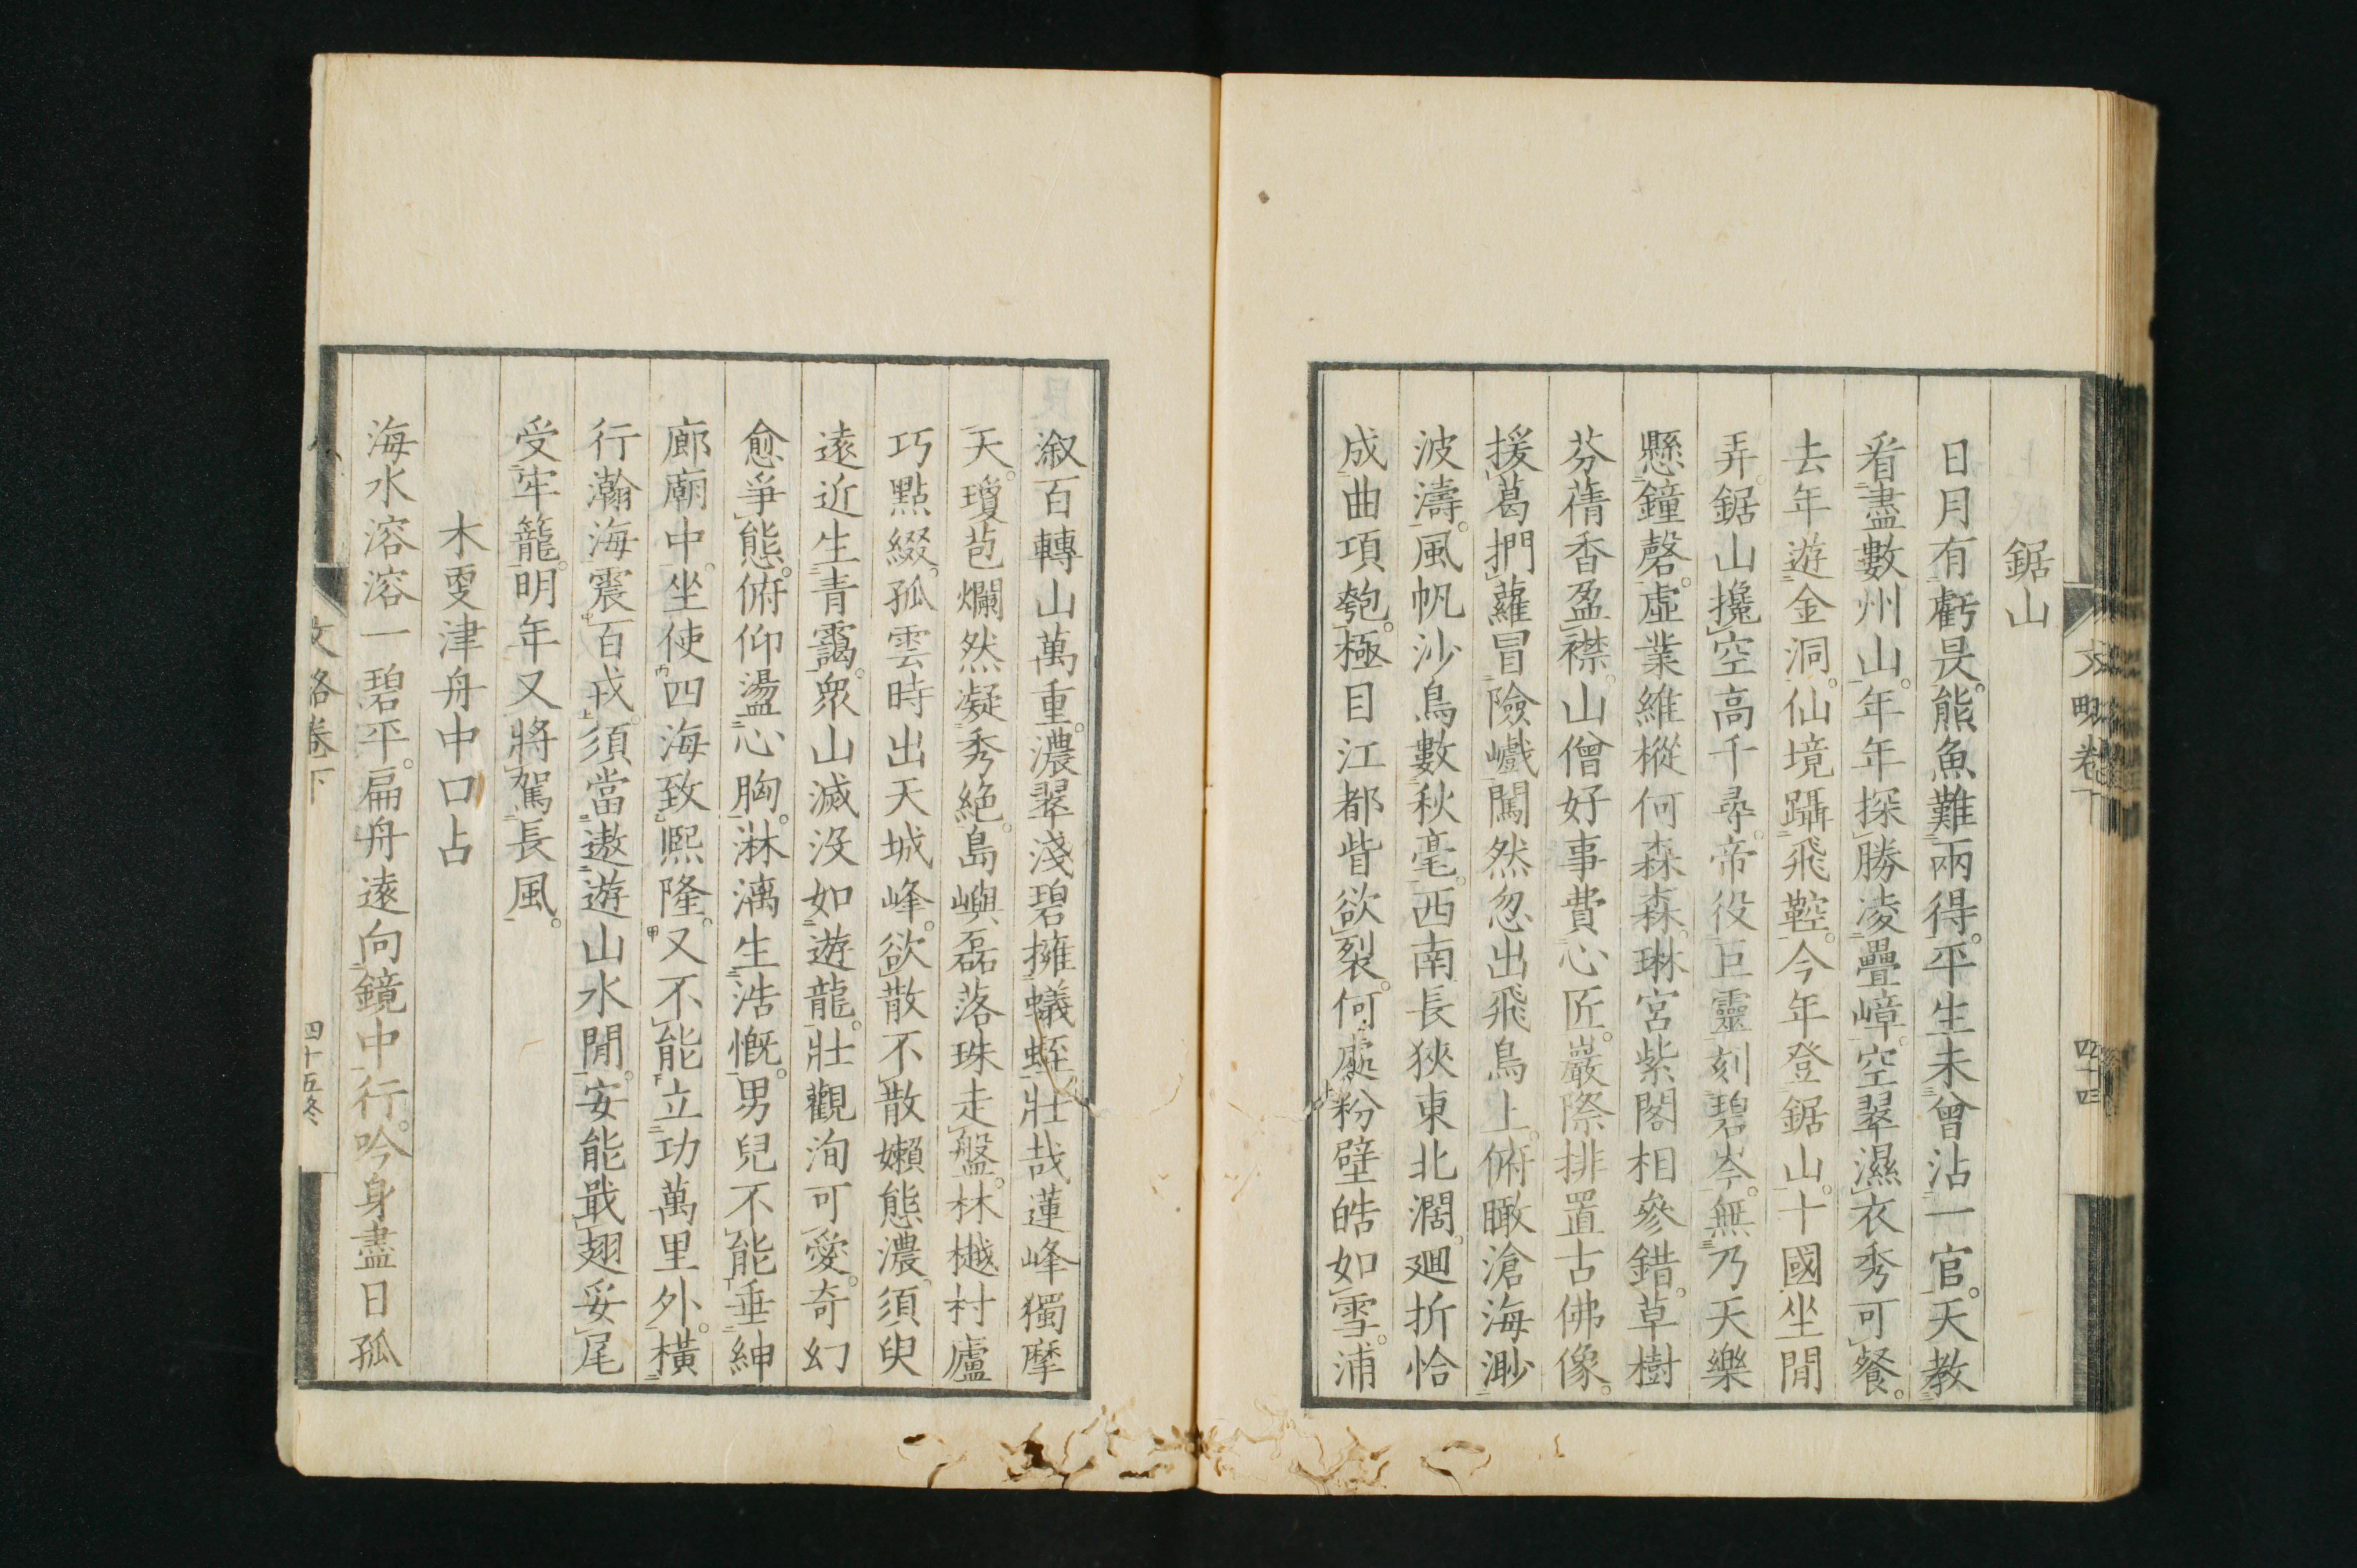 鋸山
日月有虧昃。熊魚難兩得。平生未曾沾一官。天教
看盡數州山。年年探勝凌疊嶂。空翠濕衣秀可餐。
去年遊金洞。仙境躡飛鞚。今年登鋸山。十國坐閒
弄。鋸山攙空高千尋。帝役巨靈刻碧岑。無乃天樂
懸鐘磬。虛業維樅何森森。琳宮紫閣相參錯。草樹
芬蒨香盈襟。山僧好事費心匠。巖際排置古佛像。
援葛捫蘿冒險巇。闖然忽出飛鳥上。俯瞰滄海渺
波濤。風帆沙鳥數秋毫。西南長狹東北濶。廻折恰
成曲項匏。極目江都眥欲裂。何處粉壁皓如雪。浦
漵百轉山萬重。濃翠淺碧擁蟻蛭。壯哉蓮峰獨摩
天。瓊芭爛然凝秀絶。島嶼磊落珠走盤。林樾村廬
巧點綴。孤雲時出天城峰。欲散不散嬾態濃。須臾
遠近生青靄。衆山滅沒如遊龍。壯觀洵可愛。奇幻
愈爭態。俯仰盪心胸。淋漓生浩慨。男兒不能垂紳
廊廟中。坐使四海致熙隆。又不能立功萬里外。橫
行瀚海震百戎。須當遨遊山水閒。安能戢翅妥尾
受牢籠。明年又將駕長風。
木更津舟中口占
海水溶溶一碧平。扁舟遠向鏡中行。吟身盡日孤
文略卷下
四十四
文略卷下
四十五